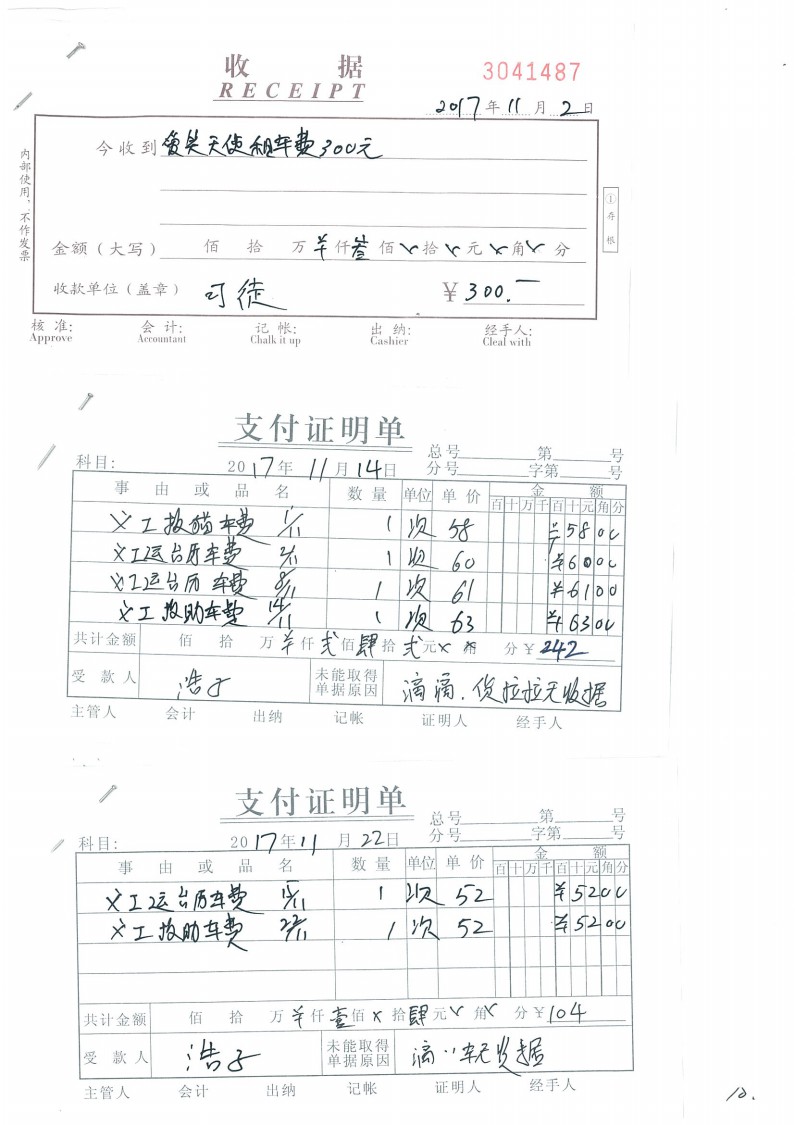 收 据
RECEIPT
3041487
2017年11月2日
内部使用,不作发票
今收到 天使租车费300元
①存根
金额(大写) 佰 拾 万 羊 仟 叁 佰 × 拾 × 元 × 角 × 分
收款单位(盖章) 司徒 ¥300.—
核 准: 会 计: 记 帐: 出 纳: 经手人:
Approve Accountant Chalk it up Cashier Cleal with
支付证明单
总号 第 号
科目: 2017年11月14日 分号 字第 号
事 由 或 品 名 数 量 单位 单 价 金 额
百 十 万 千 百 十 元 角 分
义工救猫车费 1/11 1 次 58 ¥5800
义工运台历车费 2/11 1 次 60 ¥6000
义工运台历车费 8/11 1 次 61 ¥6100
义工救助车费 14/11 1 次 63 ¥6300
共计金额 佰 拾 万 羊 仟 贰 佰 肆 拾 贰 元 × 角 分 ¥242
受 款 人 浩子 未能取得单据原因 滴滴、货拉拉无收据
主管人 会计 出纳 记帐 证明人 经手人
支付证明单
总号 第 号
科目: 2017年11月22日 分号 字第 号
事 由 或 品 名 数 量 单位 单 价 金 额
百 十 万 千 百 十 元 角 分
义工运台历车费 1 次 52 ¥5200
义工救助车费 1 次 52 ¥5200
共计金额 佰 拾 万 羊 仟 壹 佰 × 拾 肆 元 × 角 × 分 ¥104
受 款 人 浩子 未能取得单据原因 滴〃车无收据
主管人 会计 出纳 记帐 证明人 经手人
10.